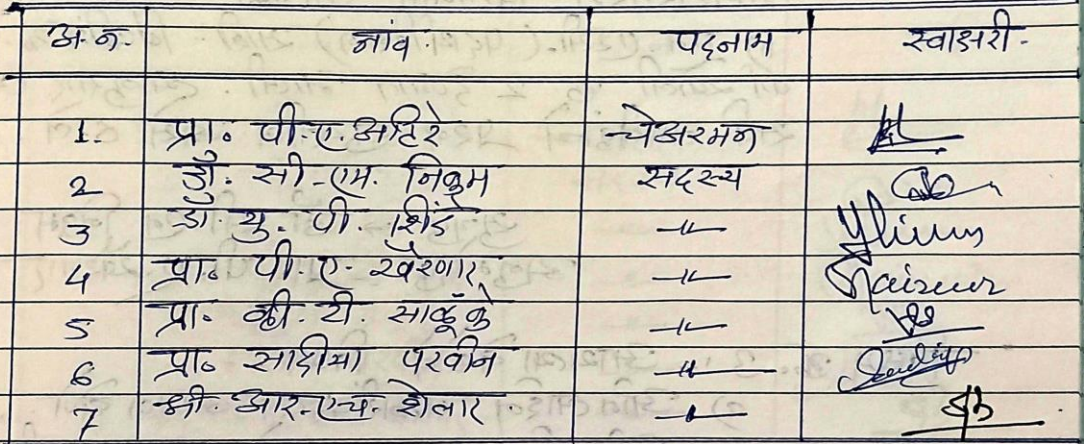 अ.न. नांव. पदनाम स्वाक्षरी.
1. प्रा. पी.ए.अहिरे चेअरमन
2 डॉ. सी.एम. निकुम सदस्य
3 डॉ. यु. पी. शिंदे -〃-
4 प्रा. पी.ए. खैरनार -〃-
5 प्रा. व्ही.टी. साळूंके -〃-
6 प्रा. सादीया परवीन -〃-
7 श्री. आर.एच. शेलार -〃-